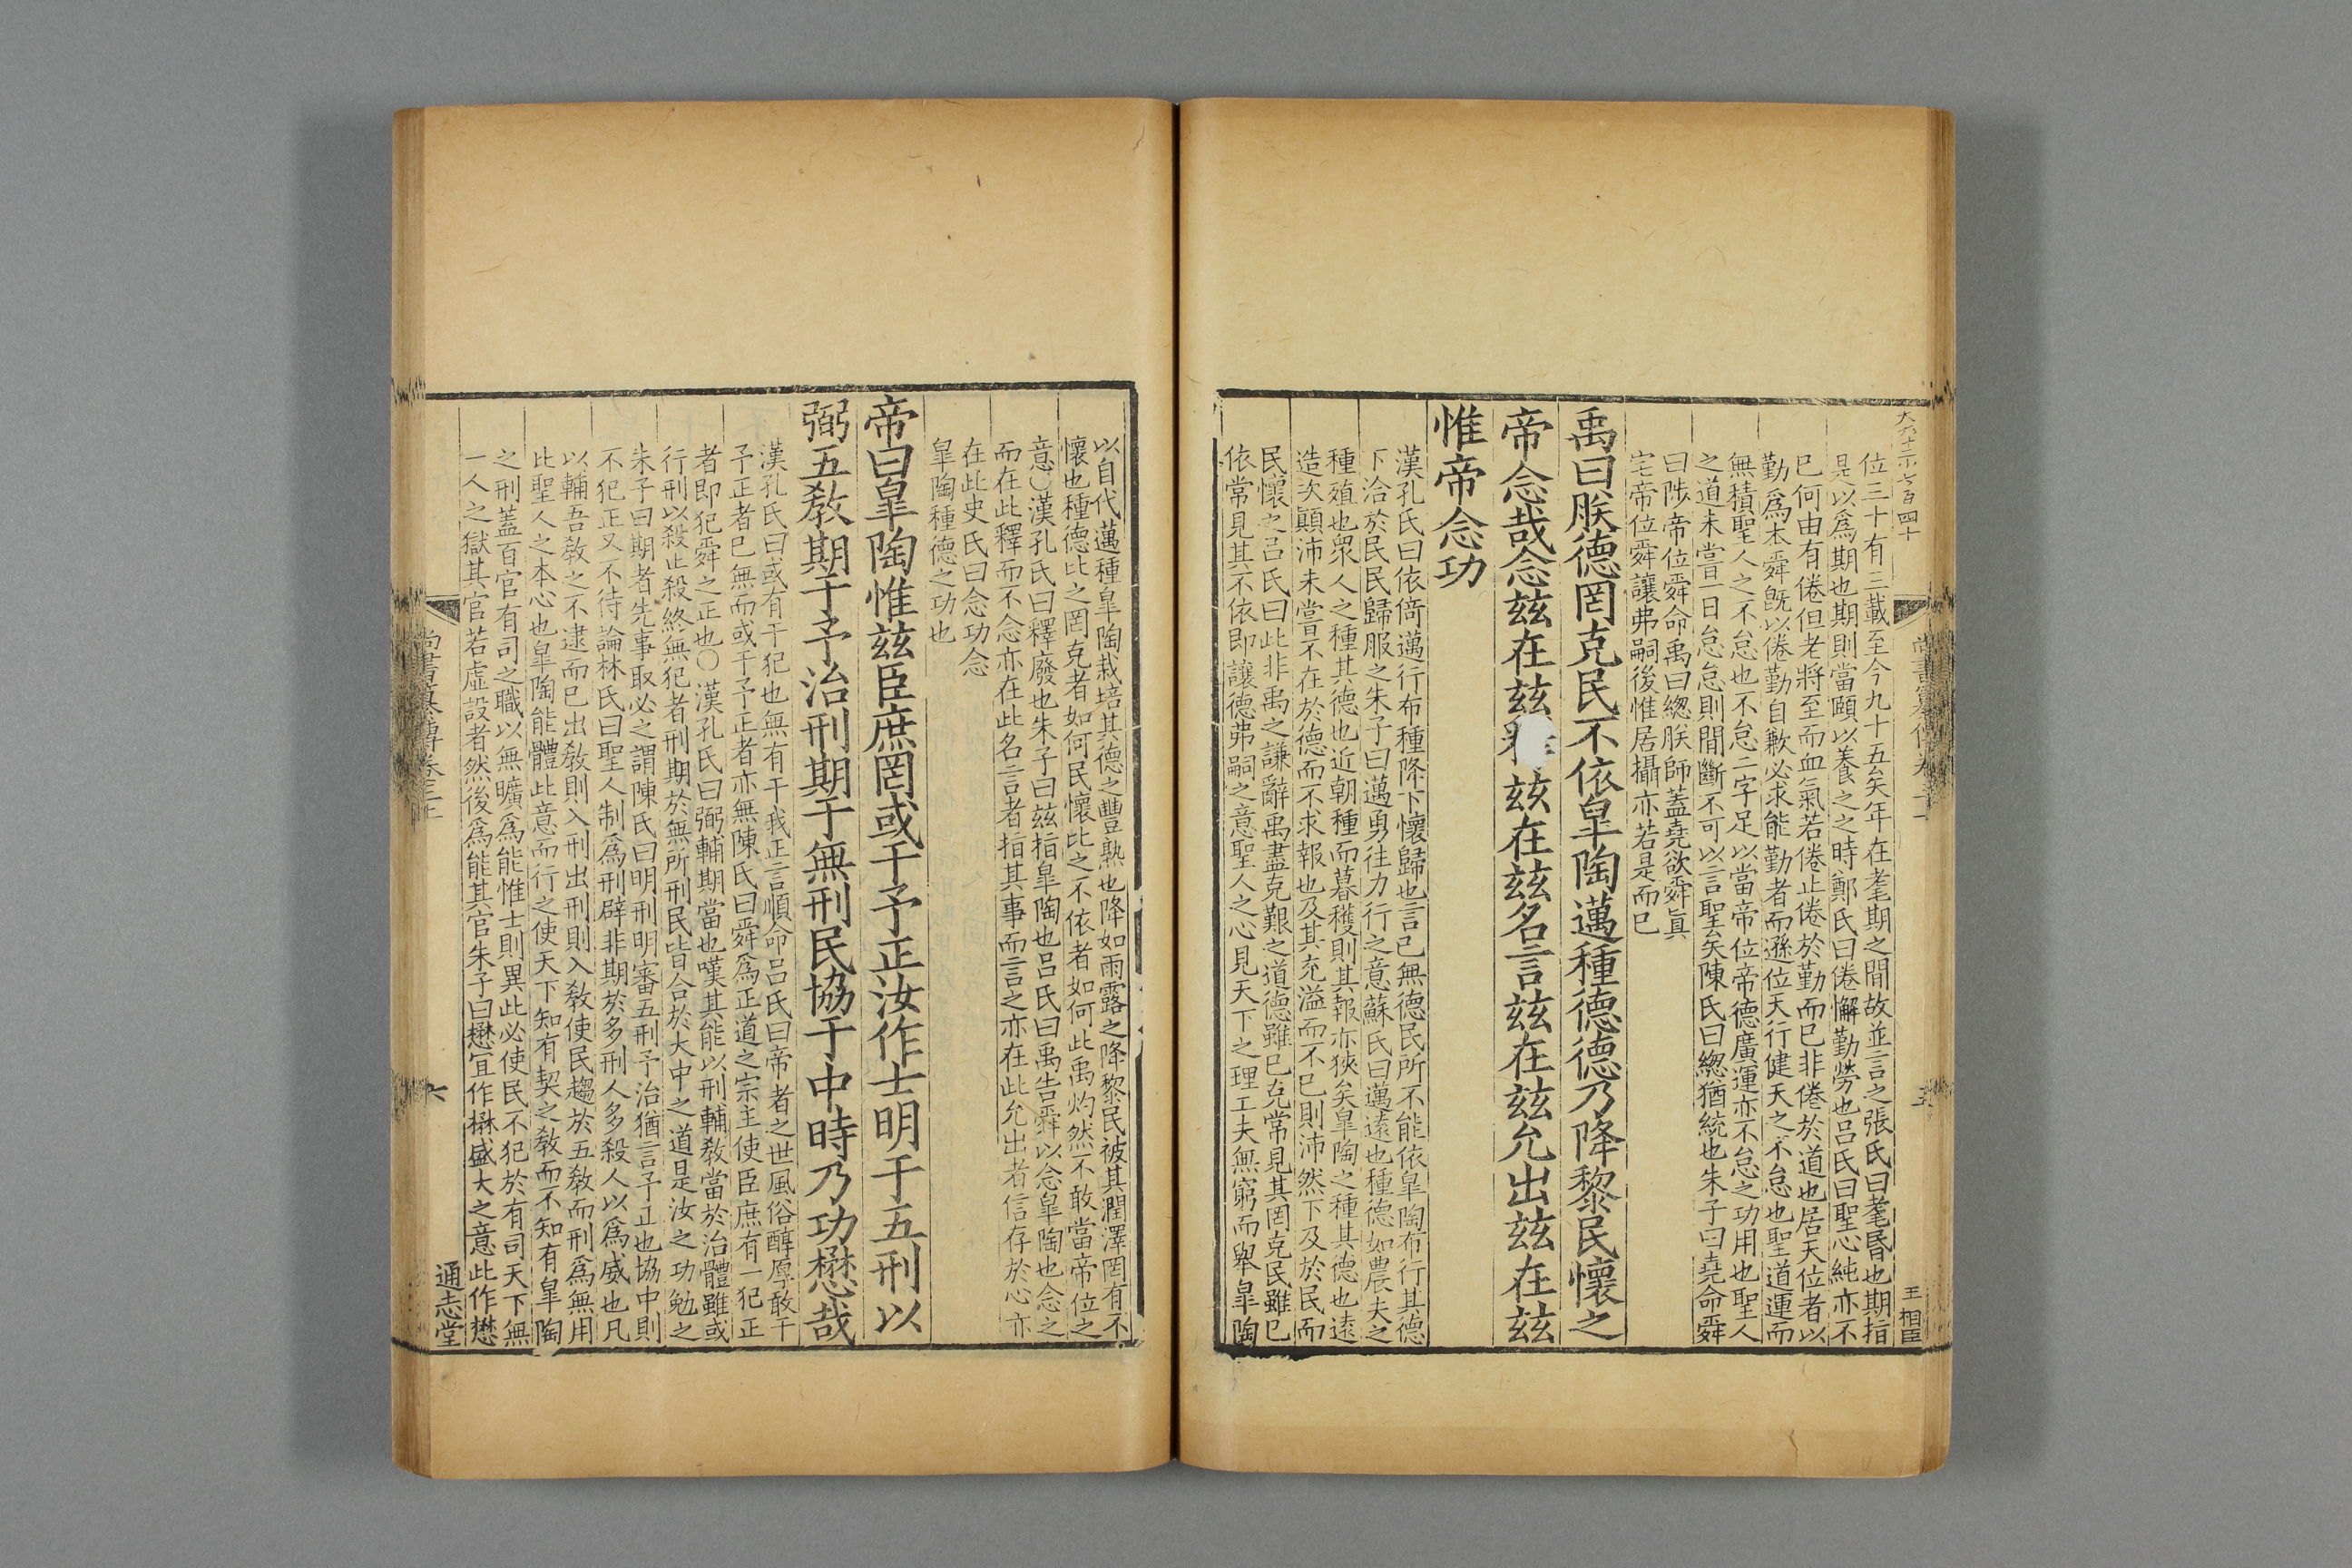 大六十三小七百四十
王相臣
位三十有三載至今九十五矣年在耄期之間故並言之張氏曰耄昬也期指
是以爲期也期則當頤以養之之時鄭氏曰倦懈勤勞也吕氏曰聖心純亦不
已何由有倦但老將至而血氣若倦止倦於勤而已非倦於道也居天位者以
勤爲本舜旣以倦勤自歉必求能勤者而遜位天行健天之不怠也聖道運而
無積聖人之不怠也不怠二字足以當帝位帝德廣運亦不怠之功用也聖人
之道未嘗一日怠怠則間斷不可以言聖矣陳氏曰緫猶統也朱子曰堯命舜
曰陟帝位舜命禹曰緫朕師蓋堯欲舜眞
宅帝位舜讓弗嗣後惟居攝亦若是而已
禹曰朕德罔克民不依皐陶邁種德德乃降黎民懷之
帝念哉念兹在兹兹在兹名言兹在兹允出兹在兹
惟帝念功
漢孔氏曰依倚邁行布種降下懷歸也言已無德民所不能依皐陶布行其德
下洽於民民歸服之朱子曰邁勇往力行之意蘇氏曰邁遠也種德如農夫之
種殖也衆人之種其德也近朝種而暮穫則其報亦狹矣皐陶之種其德也遠
造次顚沛未嘗不在於德而不求報也及其充溢而不已則沛然下及於民而
民懷之吕氏曰此非禹之謙辭禹盡克艱之道德雖已克常見其罔克民雖已
依常見其不依即讓德弗嗣之意聖人之心見天下之理工夫無窮而舉皐陶
以自代邁種皐陶栽培其德之豐熟也降如雨露之降黎民被其潤澤罔有不
懷也種德比之罔克者如何民懷比之不依者如何此禹灼然不敢當帝位之
意〇漢孔氏曰釋廢也朱子曰兹指皐陶也吕氏曰禹告舜以念皐陶也念之
而在此釋而不念亦在此名言者指其事而言之亦在此允出者信存於心亦
在此史氏曰念功念
皐陶種德之功也
帝曰皐陶惟兹臣庶罔或干予正汝作士明于五刑以
弼五敎期于予治刑期于無刑民協于中時乃功懋哉
漢孔氏曰或有干犯也無有干我正言順命吕氏曰帝者之世風俗醇厚敢干
予正者已無而或干予正者亦無陳氏曰舜爲正道之宗主使臣庶有一犯正
者即犯舜之正也〇漢孔氏曰弼輔期當也嘆其能以刑輔敎當於治體雖或
行刑以殺止殺終無犯者刑期於無所刑民皆合於大中之道是汝之功勉之
朱子曰期者先事取必之謂陳氏曰明刑明審五刑予治猶言予正也協中則
不犯正又不待論林氏曰聖人制爲刑辟非期於多刑人多殺人以爲威也凡
以輔吾敎之不逮而已出敎則入刑出刑則入敎使民趨於五敎而刑爲無用
此聖人之本心也皐陶能體此意而行之使天下知有契之敎而不知有皐陶
之刑蓋百官有司之職以無曠爲能惟士則異此必使民不犯於有司天下無
一人之獄其官若虚設者然後爲能其官朱子曰懋冝作楙盛大之意此作懋
尚書纂傳卷三上
六
通志堂